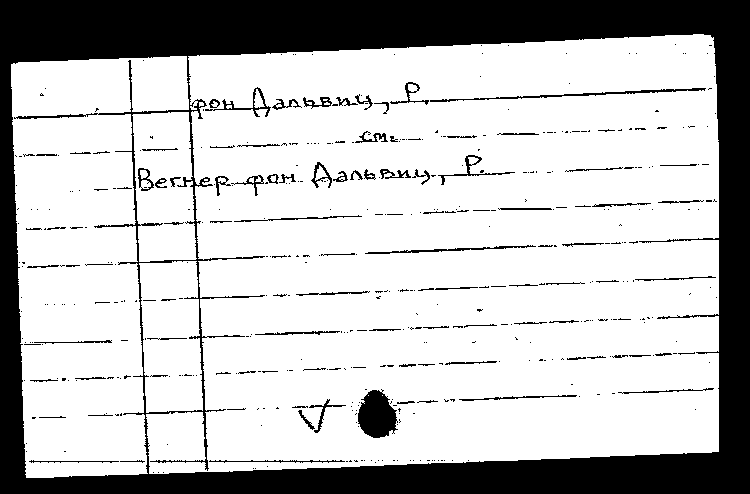 фон Дальвиц, Р.
см.
Вегнер фон Дальвиц, Р.